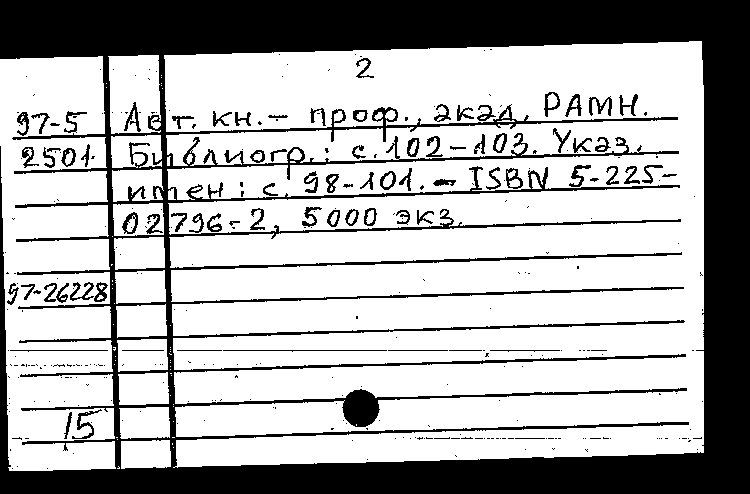 2
97-5 Авт. кн. - проф., акад. РАМН.
2501 Библиогр.: с. 102-103. Указ.
имен: с. 98-101. - ISBN 5-225-
02796-2, 5000 экз.
97-26228
15